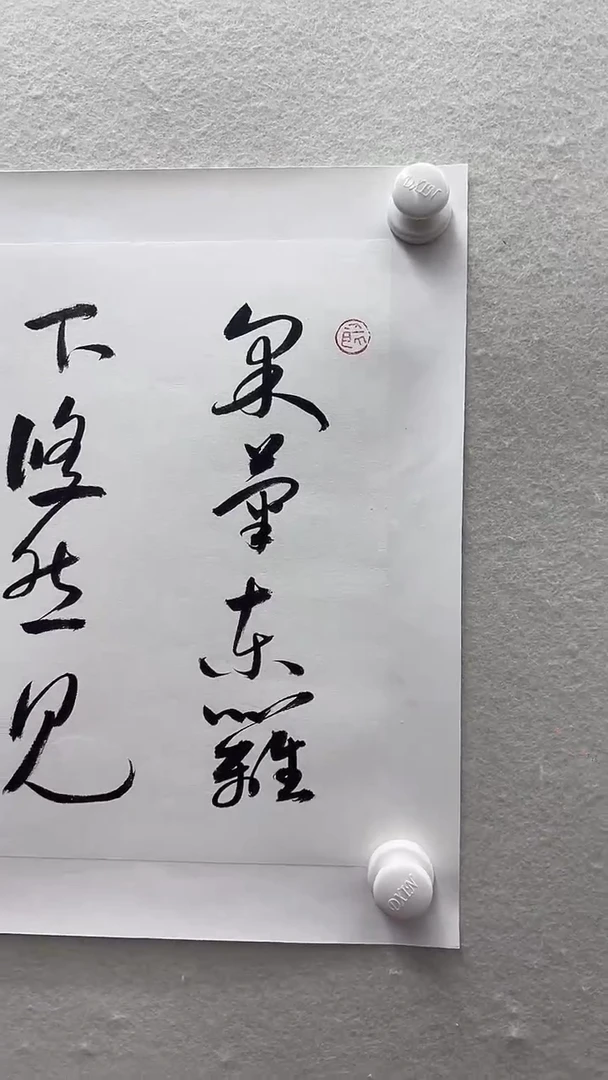 采菊东篱
下悠然见
DXIN
DXIN